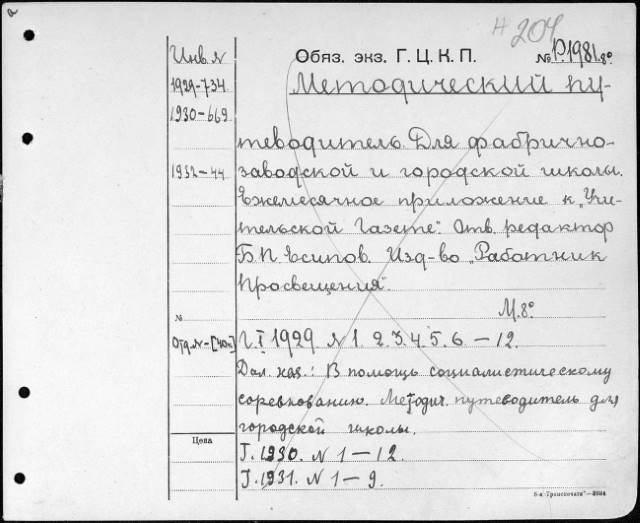 а
Н 204
Инв. N
Обяз. экз. Г. Ц. К. П.
№ Р.1981.8°
1929-734
Методический пу-
1930-669
теводитель. Для фабрично-
1932-44
заводской и городской школы.
Ежемесячное приложение к „Учи-
тельской Газете". Отв. редактор
Б.П. Есипов. Изд-во „Работник
Просвещения".
М.8°
№
Отд.N-[40к]
Г. I 1929 N 1. 2. 3. 4. 5. 6. — 12.
Дал. наз.: В помощь социалистическому
соревнованию. Методич. путеводитель для
городской школы.
Цена
Г. 1930. N 1 — 12.
Г. 1931. N 1 — 9.